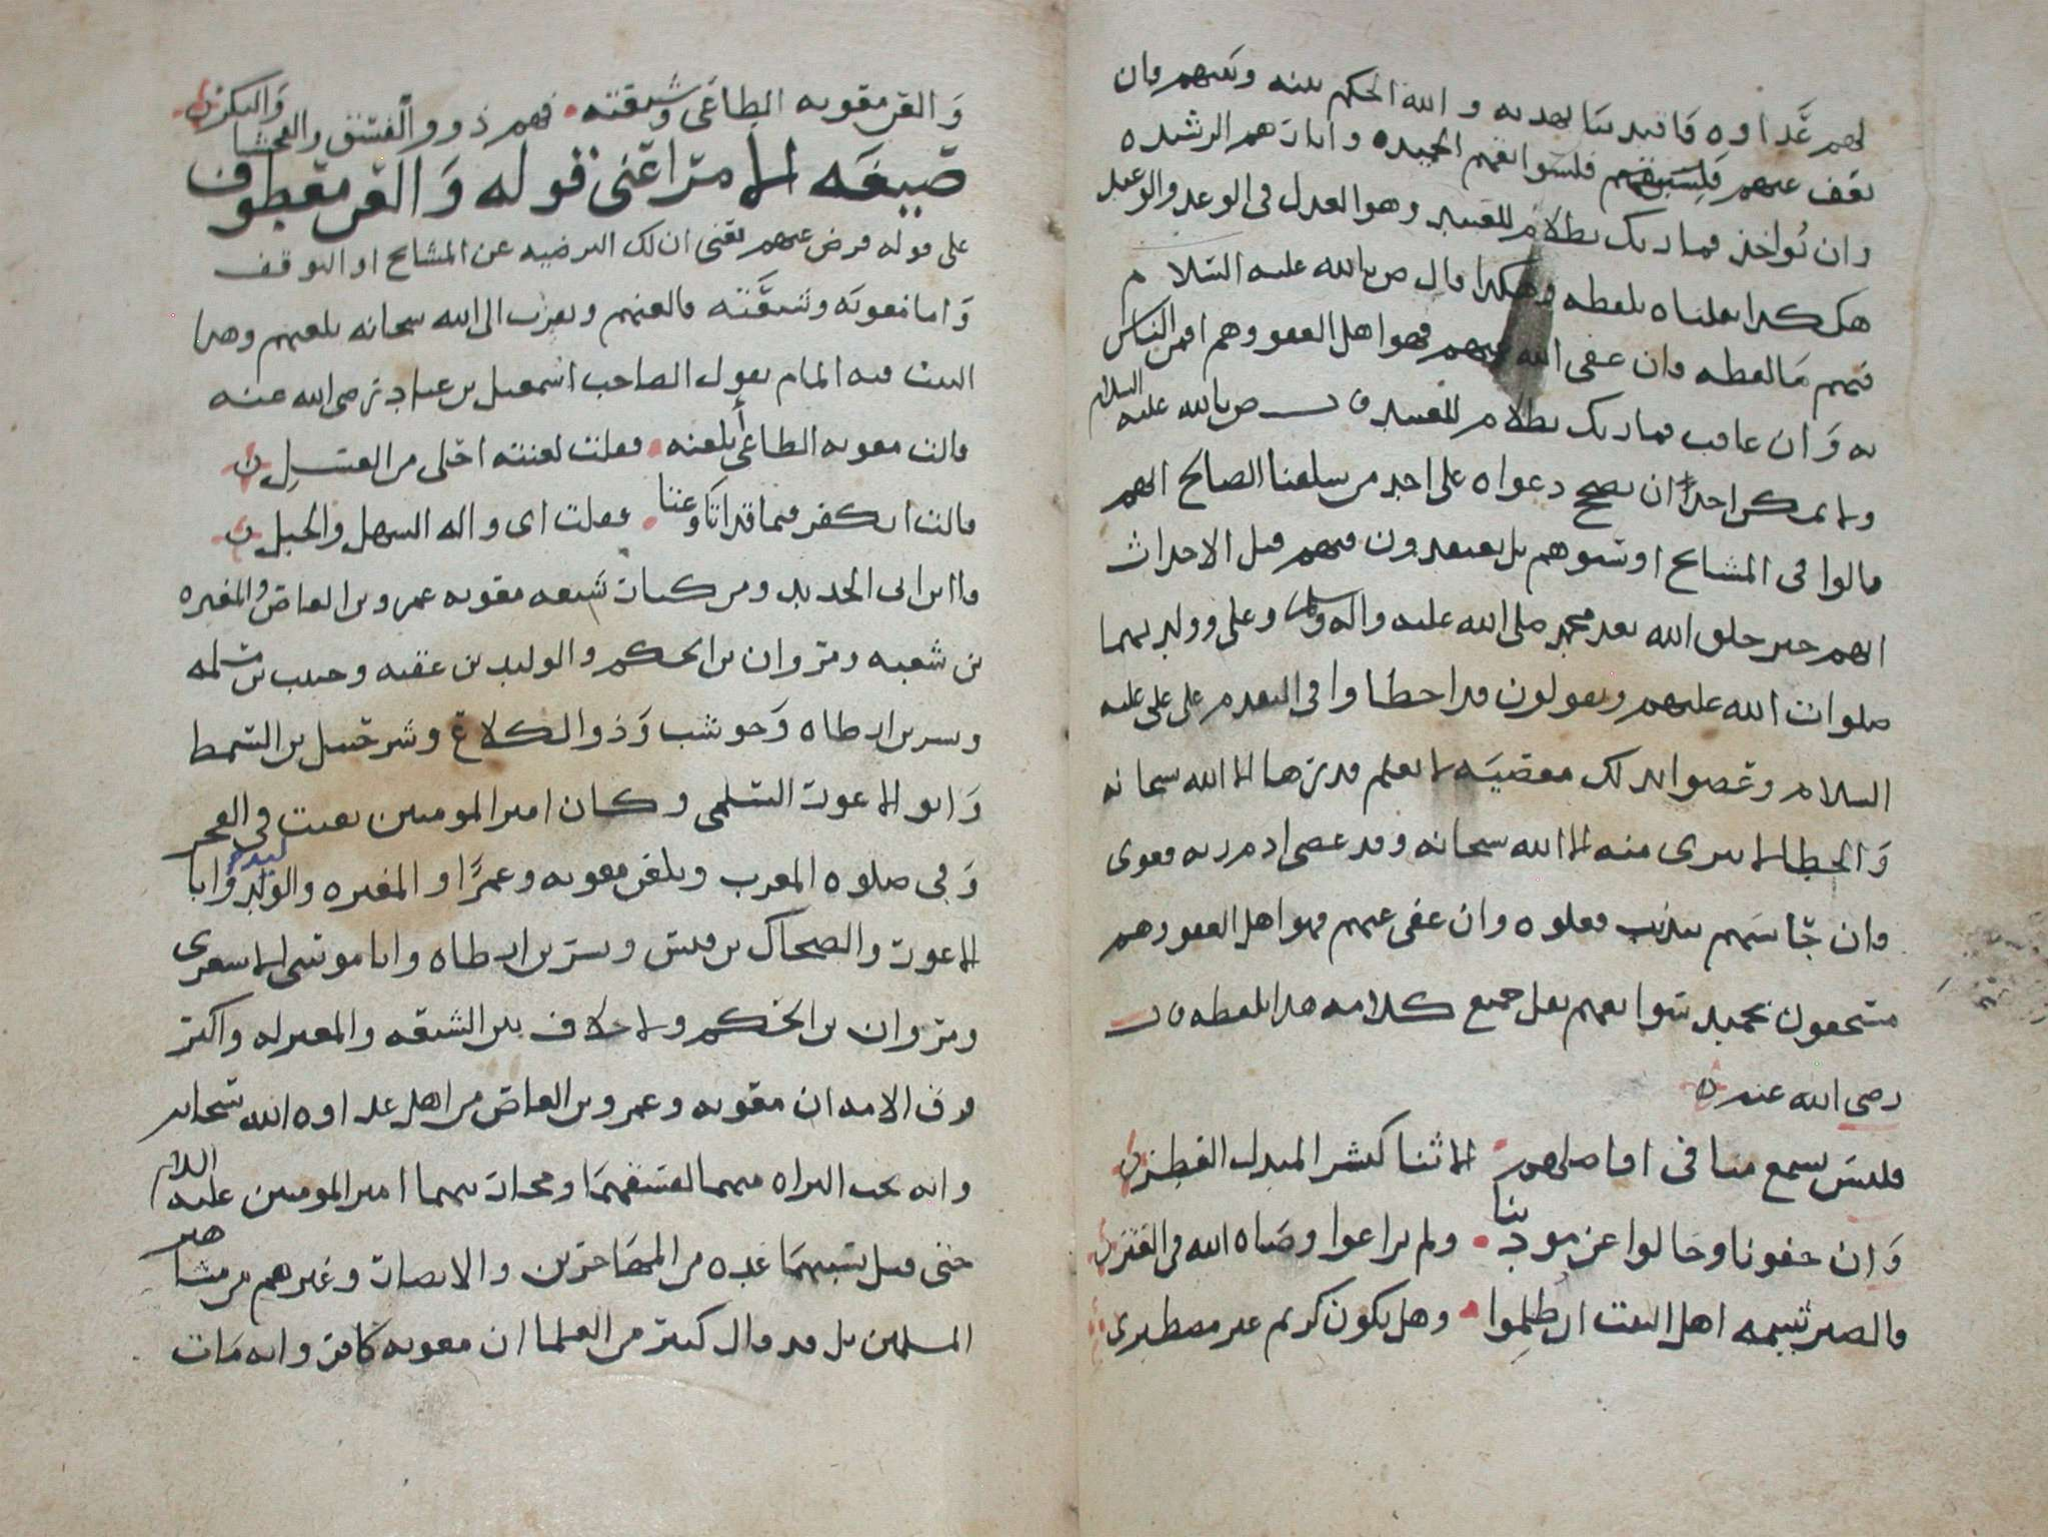 لهم عداوه فانه بينا بعده والله الحكم بينه وبينهم وان
يقف عنهم فلسوابقهم الحميده واثارهم الرشيده
وان تواخذ فما ربك بظلام للعبيد وهو العدل في الوعد والوعيد
هكذا نقلناه بلفظه وهكذا قال ص بالله عليه السلام
فيهم ما لفظه وان عفى الله عنهم فهو اهل العفو وهم اقمن الناس
به وان عاقب فما ربك بظلام للعبيد قال ص بالله عليه السلام
ولا يمكن احدا ان يصحح دعواه على احد من سلفنا الصالح انهم
قالوا في المشايخ او سبوهم بل يعتقدون فيهم قبل الاحداث
انهم خير خلق الله بعد محمد صلى الله عليه واله وسلم وعلي وولديهما
صلوات الله عليهم ويقولون قد اخطاوا في التقدم على علي عليه
السلام وعصوا بذلك معصيه لا يعلم قدرها الا الله سبحانه
والخطا لا يبرى منه الا الله سبحانه وقد عصى ادم ربه فغوى
وان حاسبهم بذنب فعلوه وان عفى عنهم فهو اهل العفو وهم
مستحقون بحميد سوابقهم نقل جميع كلامه هذا بلفظه قال
رضي الله عنه
فليس يسمع منا في افاضلهم الا ثنا كنشر المندل القطر
وان جفونا وحالوا عن مودتنا ولم يراعوا وصاه الله في العتر
فالصبر شيمه اهل البيت ان ظلموا وهل يكون كريم غير مصطبر
والعن معويه الطاغي وشيعته فهم ذوو الفسق والفحشا والنكر
صيغه الامر اعني قوله والعن معطوف
على قوله فرض عنهم يعني ان لك الترضيه عن المشايخ او التوقف
واما معويه وشيعته فالعنهم وتقرب الى الله سبحانه بلعنهم وهذا
البيت فيه المام بقول الصاحب اسمعيل بن عباد رضي الله عنه
قالت معويه الطاغي أتلعنه فقلت لعنته احلى من العسل
قالت اتكفر فيما قد اتا وعثا فقلت اي واله السهل والجبل
قال ابن ابي الحديد ومن كبار شيعه معويه عمرو بن العاص والمغيره
بن شعبه ومروان بن الحكم والوليد بن عقبه وحبيب بن مسلمه
وبسر بن ارطاه وحوشب وذو الكلاع وشرحبيل بن السمط
وابو الاعور السلمي وكان امير المومنين يقنت في الفجر
وفي صلوه المغرب ويلعن معويه وعمرا والمغيره والوليد وابا
الاعور والضحاك بن قيس وبسر بن ارطاه وابا موسى الاشعري
ومروان بن الحكم ولا خلاف بين الشيعه والمعتزله واكثر
فرق الامه ان معويه وعمرو بن العاص من اهل عداوه الله سبحانه
وانه يجب البراه منهما لفسقهما ومحاربتهما امير المومنين عليه السلام
حتى قيل بسببهما عده من المهاجرين والانصار وغيرهم من مشاهير
المسلمين بل قد قال كثير من العلما ان معويه كافر وانه مات